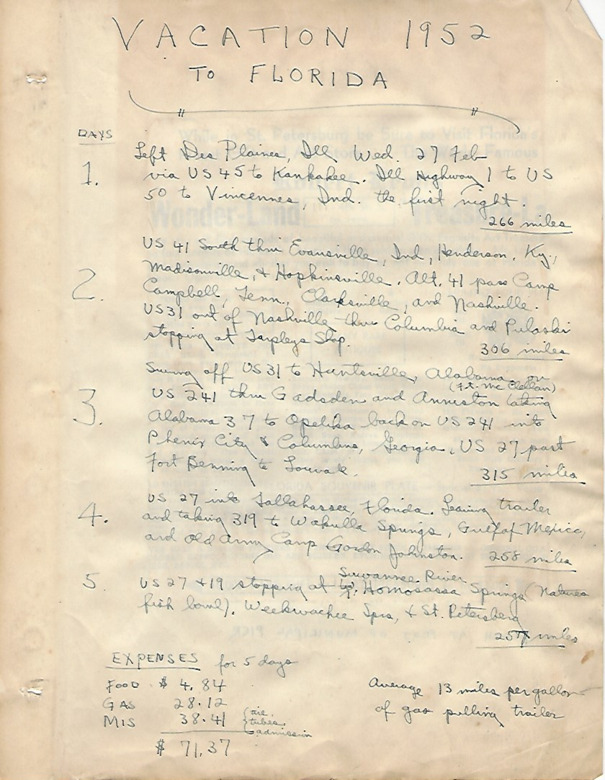 VACATION 1952
TO FLORIDA
DAYS
1. Left Des Plaines, Ill Wed. 27 Feb
via US 45 to Kankakee. Ill Highway 1 to US
50 to Vincennes, Ind. the first night.
266 miles
US 41 South thru Evansville, Ind, Henderson, Ky.,
Madisonville, & Hopkinsville. Alt. 41 pass Camp
2. Campbell, Tenn., Clarksville, and Nashville.
US 31 out of Nashville thru Columbia and Pulaski
stopping at Tarpleys Stop.
306 miles
Swing off US 31 to Huntsville, Alabama on
(Ft. Mc Clellan)
US 241 thru Gadsden and Anniston taking
3. Alabama 37 to Opelika back on US 241 into
Phenix City & Columbus, Georgia, US 27 past
Fort Benning to Louvale.
315 miles
US 27 into Tallahassee, Florida. Leaving trailer
4. and taking 319 to Wakulla Springs, Gulf of Mexico,
and Old Army Camp Gordon Johnston. 258 miles
Suwannee River
5 US 27 & 19 stopping at Homosassa Springs (Natures
fish bowl), Weekwachee Sprs, & St. Petersberg
257 miles
EXPENSES for 5 days
FOOD $ 4.84
GAS 28.12
MIS 38.41 (oil tubes admission
$ 71.37
Average 13 miles per gallon
of gas pulling trailer